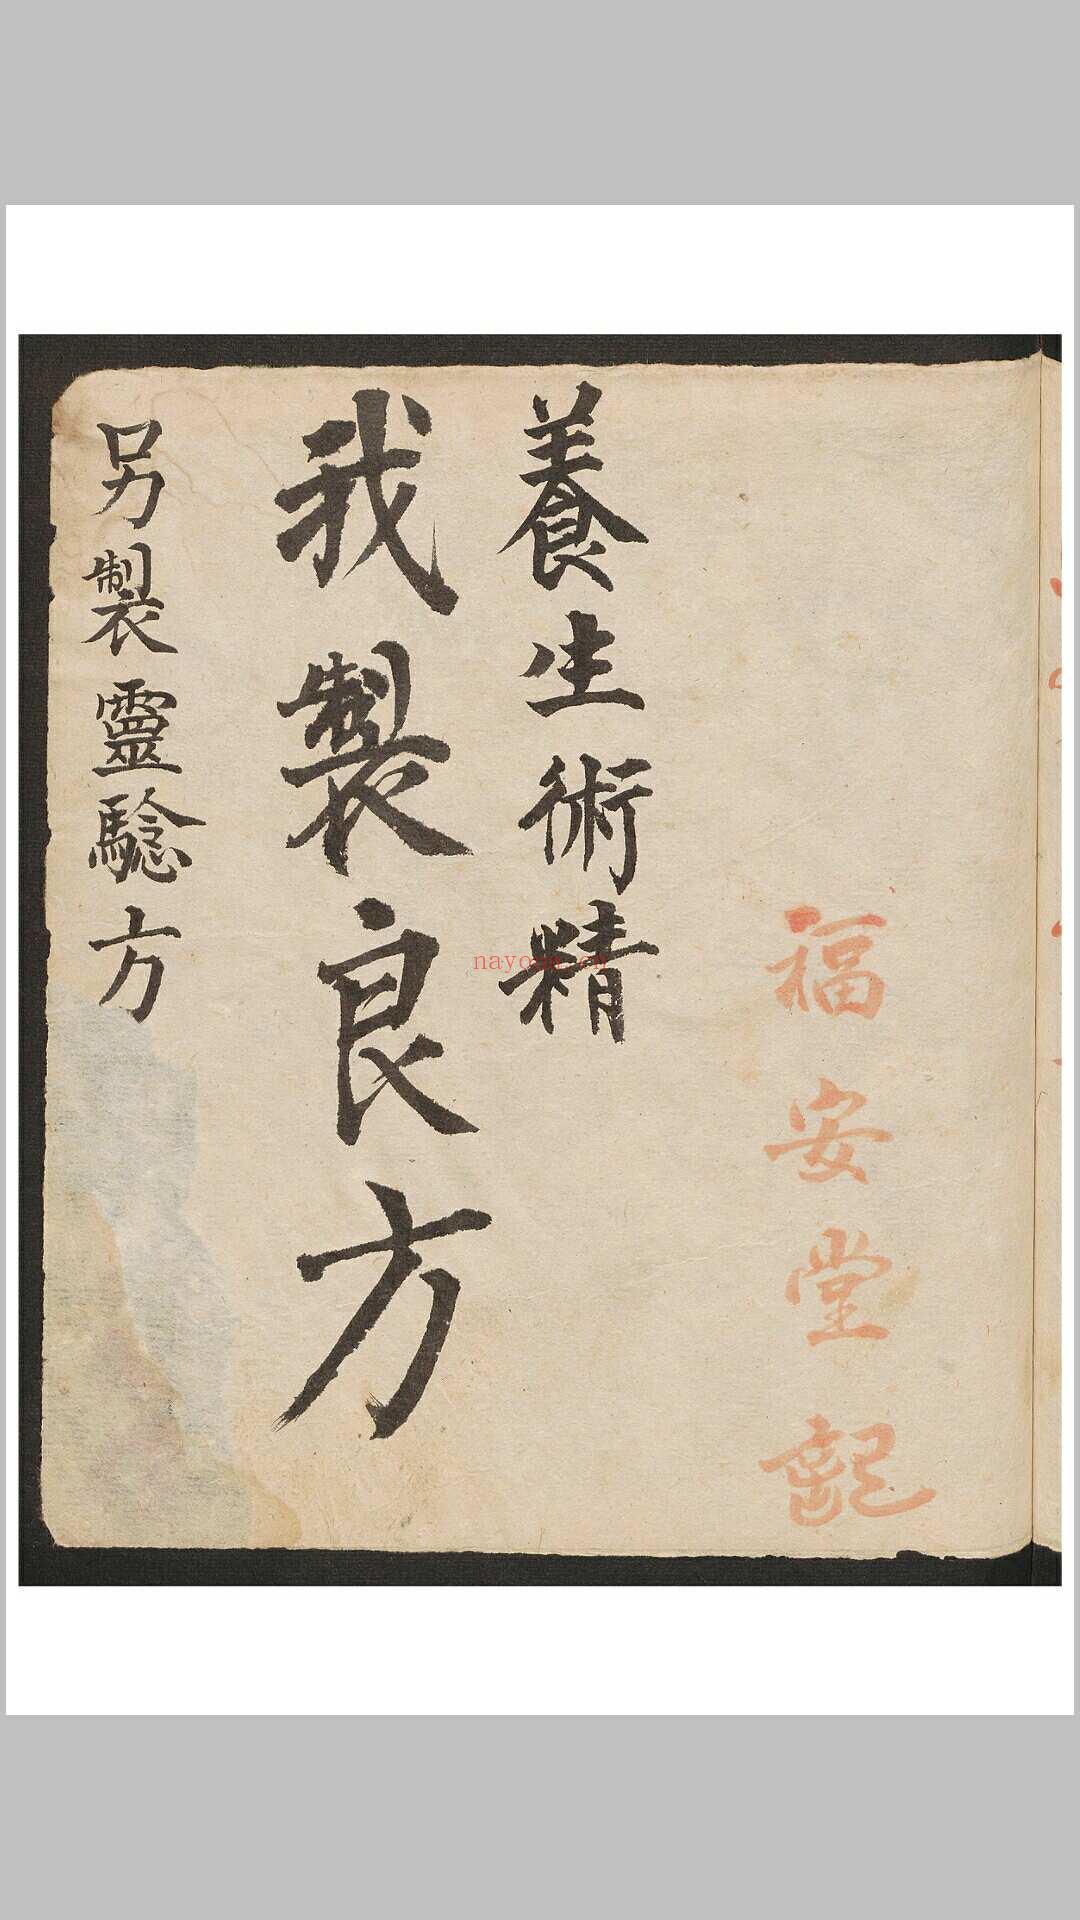 福安堂記
養生術精
我製良方
另製靈騐方
nayona.cn